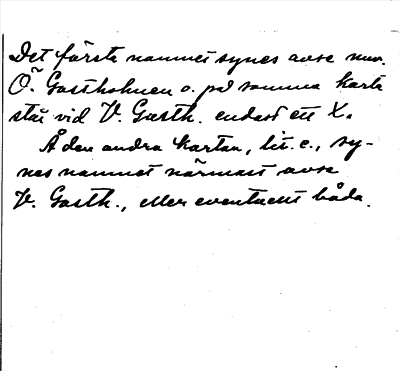 Det första namnet synes avse nuv.
Ö. Gastholmen o. på samma karta
står vid V. Gasth. endast ett X.
Å den andra kartan, lit. c., sy-
nes namnet närmast avse
V. Gasth., eller eventuellt båda.